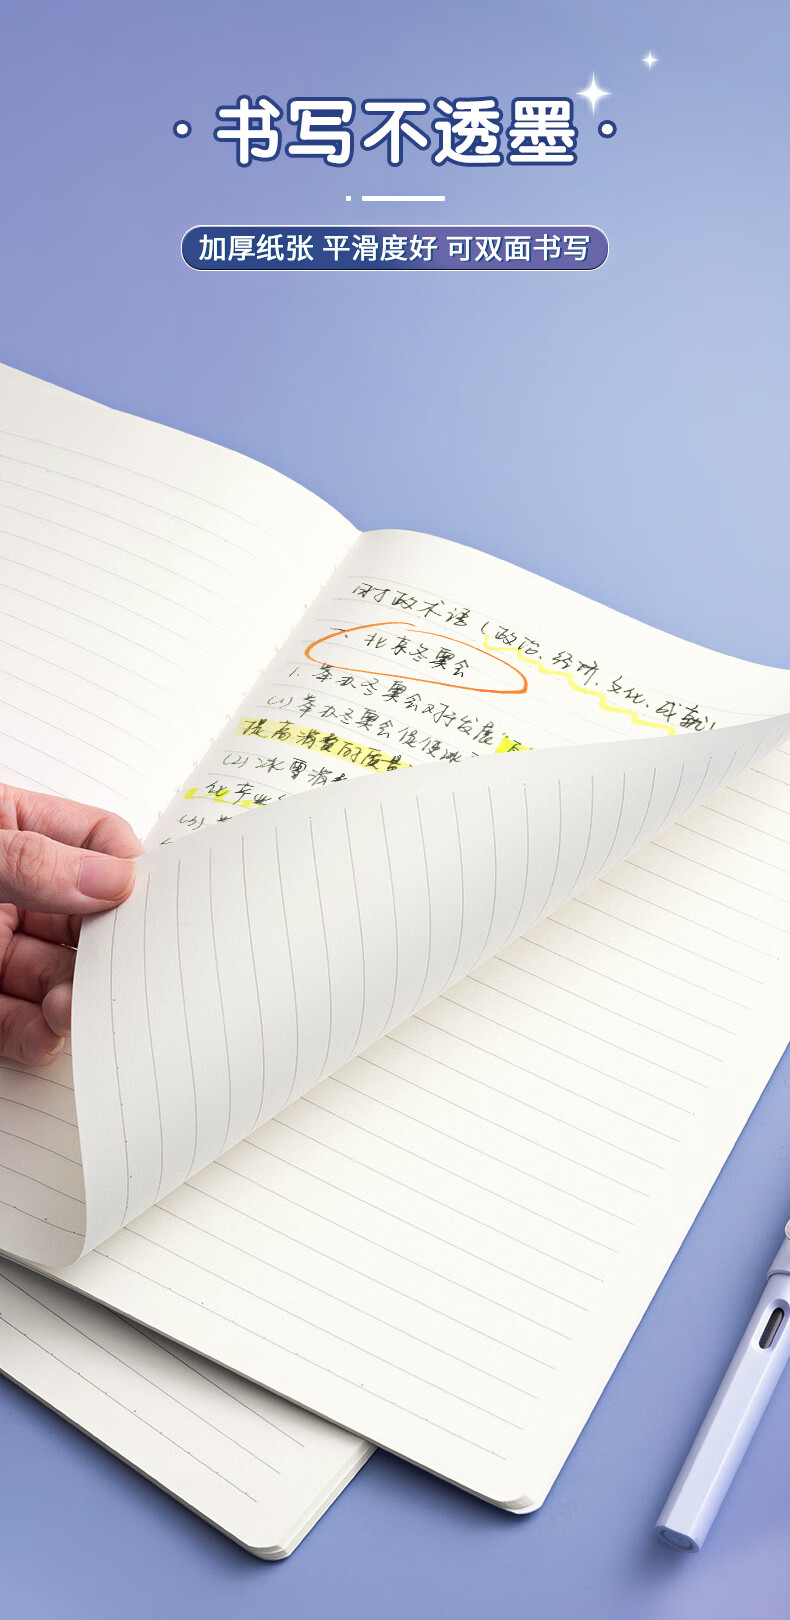 ·书写不透墨·
加厚纸张 平滑度好 可双面书写
时政术语(政治、经济、文化、成就)
一、北京冬奥会
1. 举办冬奥会对于发展"
(1) 举办冬奥会促使冰
提高消费的质量
(2) 冰雪消
化产业
(3)